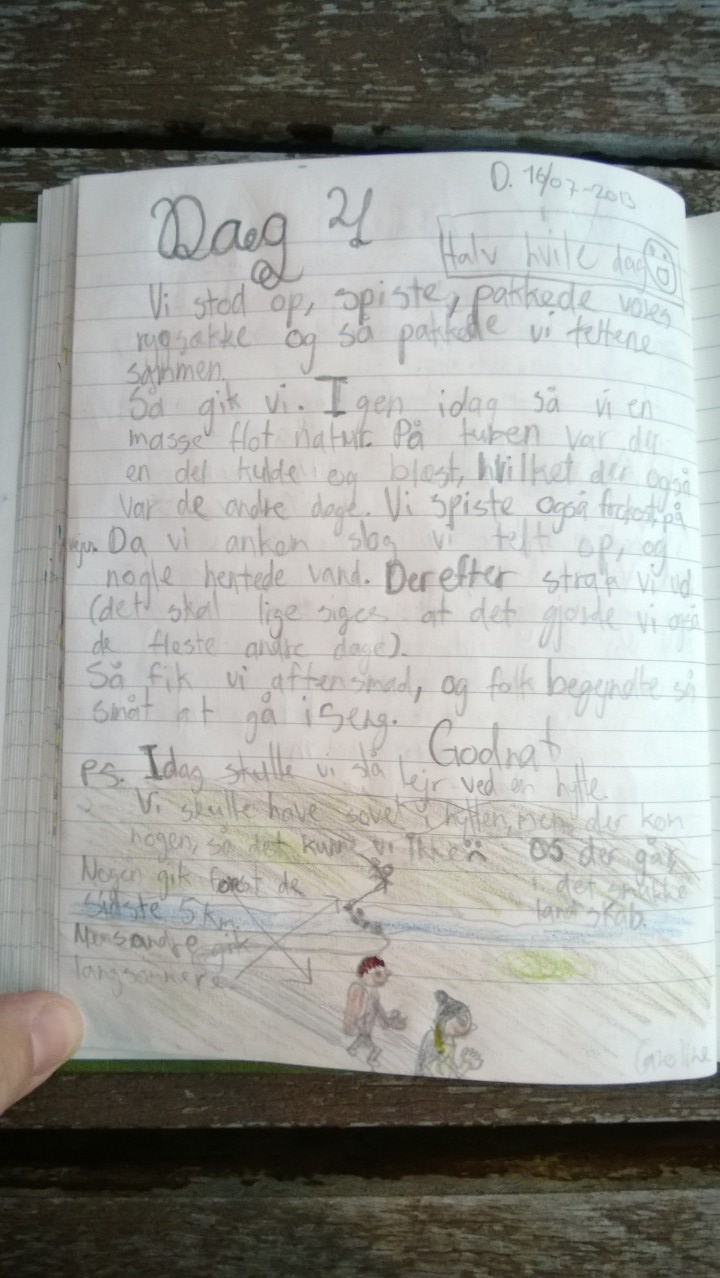 D. 16/07-2013
Dag 4
Halv hvile dag
Vi stod op, spiste, pakkede vores
rygsække og så pakkede vi teltene
sammen.
Så gik vi. Igen idag så vi en
masse flot natur. På turen var der
en del kulde og blæst, hvilket der også
var de andre dage. Vi spiste også frokost på
vejen. Da vi ankom slog vi telt op, og
nogle hentede vand. Derefter strak vi ud
(det skal lige siges at det gjorde vi også
de fleste andre dage).
Så fik vi aftensmad, og folk begyndte så
småt at gå i seng.
Godnat
PS. Idag skulle vi slå lejr ved en hytte.
Vi skulle have sovet i hytten, men der kom
nogen, så det kunne vi ikke
Nogen gik forest de
sidste 5 km.
Mens andre gik
langsommere
OS der går
i det smukke
landskab.
Caroline